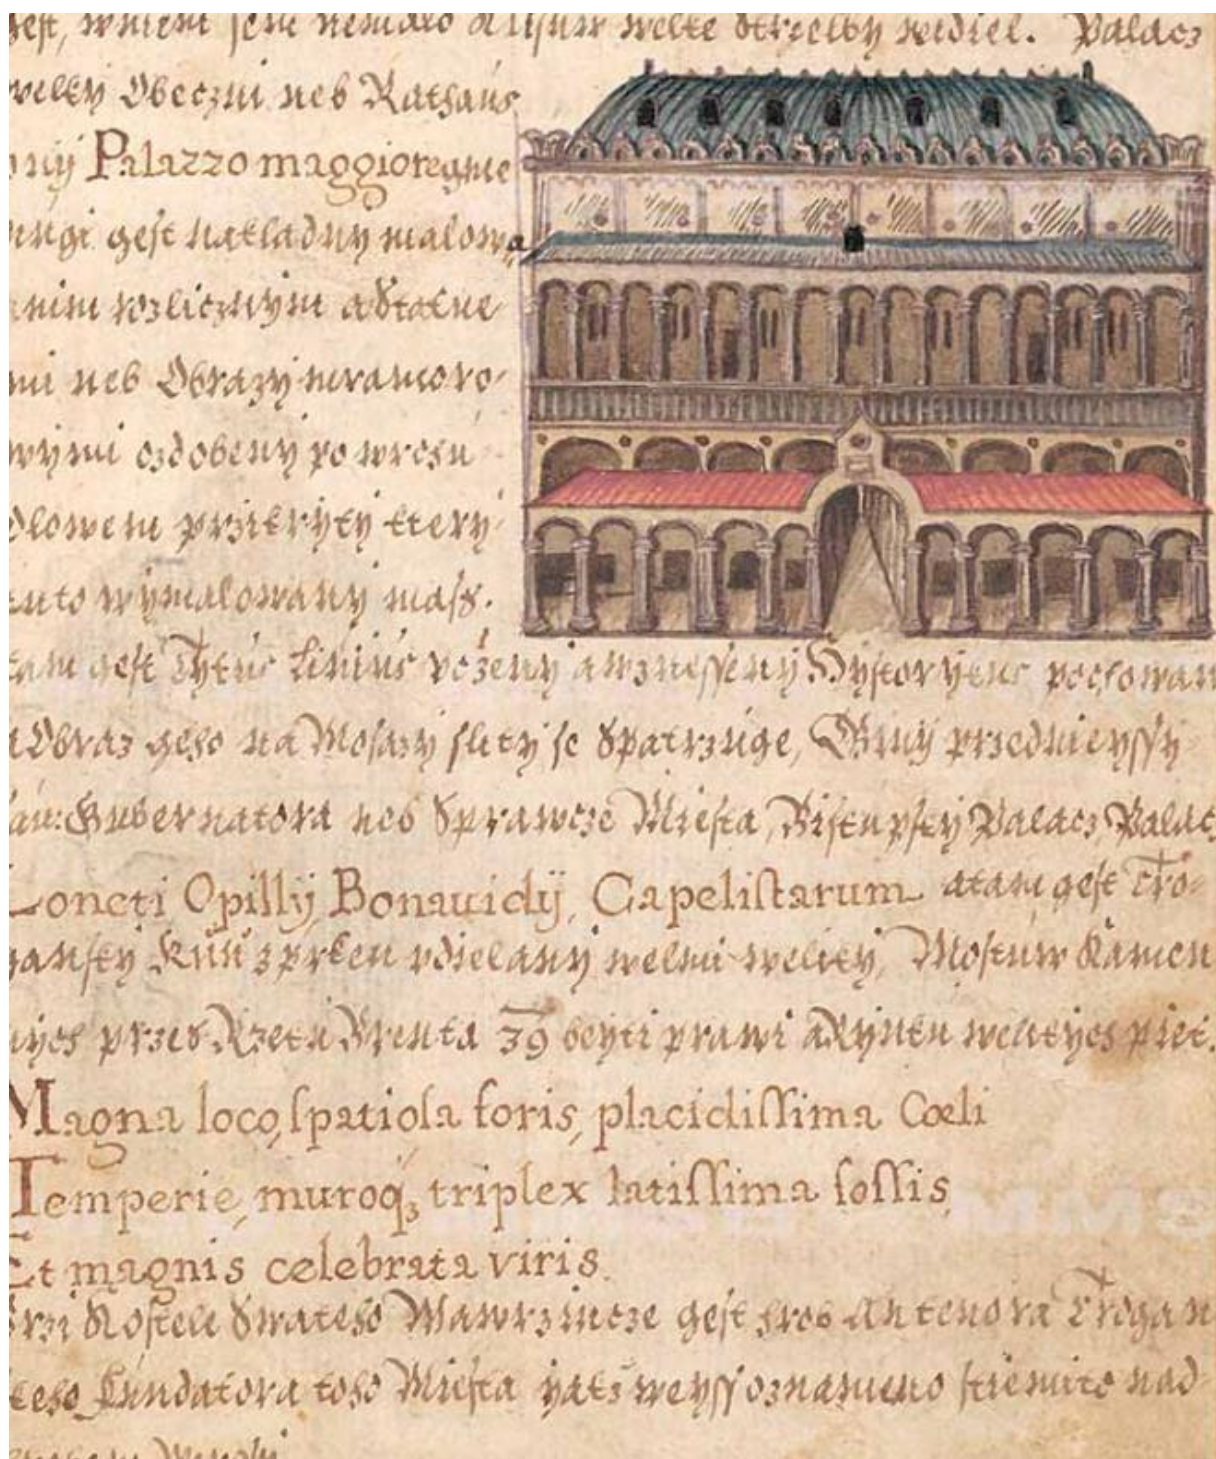 gest, wniem sem nemalo a Usuw welke Strzelby widiel. Palacz
welky Obeczni neb Rathaus
Palazzo maggiore gme
nugi gest nakladny malowa
nim rozlicznym a Statue
mi neb Obrazy mramoro
wymi ozdobeny po wrchu
olowem przikryty ktery
tuto wymalowany mass.
tam gest Tytus Liuius vczeny a wznesseny Hystorykus pochowan
a Obraz geho na Mosazy slity se Spatrzuge, Giny przednieyssy
Gubernatora neb Sprawcze Miesta, Biskupsky Palacz, Palac
Loncti Opillij Bonauidij, Capelistarum atam gest Tro-
ansky Kuň z prken vdielany welmi weliky, Mostuw Kamen
nych przes Rzeku Brenta 39 beyti prawi a Rynku welikych piet.
Magna loco, spatiosa foris, placidissima Cœli
Temperie, muroq́ꝫ triplex latissima fossis,
Et magnis celebrata viris.
Przi Kostele Swateho Wawrzincze gest hrob Antenora Trogan
keho Fundatora toho Miesta yakž weyss oznameno stiemito nad